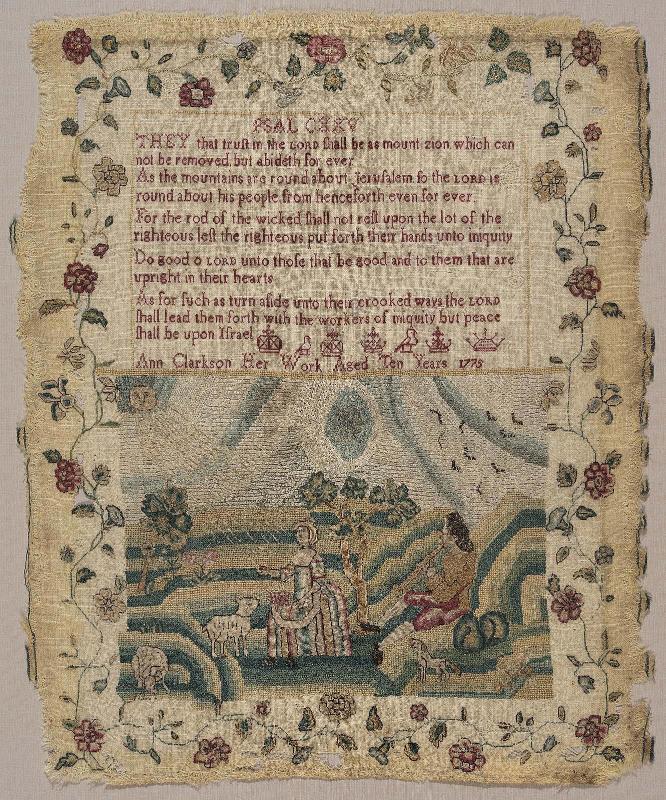 PSAL CXXV
THEY that truſt in the LORD ſhall be as mount zion which can
not be removed but abideth for ever
As the mountains are round about Jeruſalem ſo the LORD is
round about his people from henceforth even for ever
For the rod of the wicked ſhall not reſt upon the lot of the
righteous leſt the righteous put forth their hands unto iniquity
Do good o LORD unto thoſe that be good and to them that are
upright in their hearts
As for ſuch as turn aſide unto their crooked ways the LORD
ſhall lead them forth with the workers of iniquity but peace
ſhall be upon Iſrael
Ann Clarkson Her Work Aged Ten Years 1775